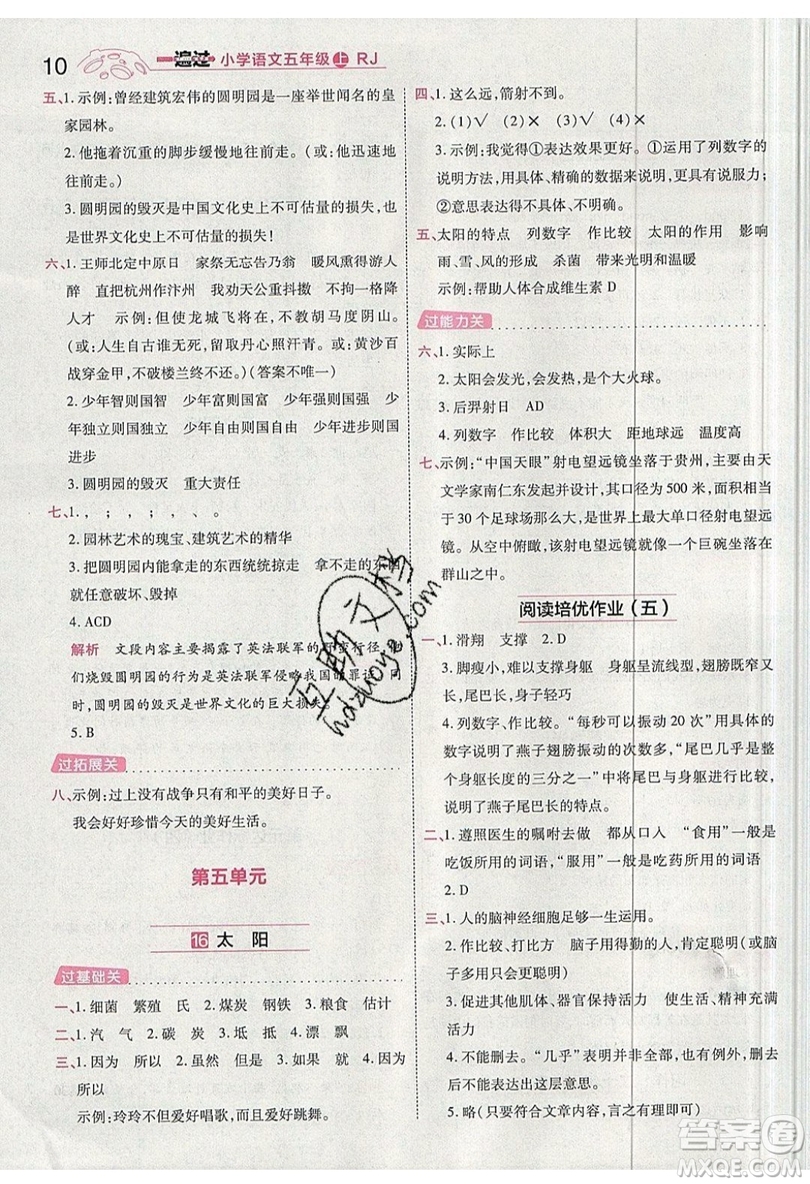 10
一遍过 小学语文五年级 上 RJ
五、1. 示例:曾经建筑宏伟的圆明园是一座举世闻名的皇
家园林。
2. 他拖着沉重的脚步缓慢地往前走。(或:他迅速地
往前走。)
3. 圆明园的毁灭是中国文化史上不可估量的损失,也
是世界文化史上不可估量的损失!
六、1. 王师北定中原日 家祭无忘告乃翁 暖风熏得游人
醉 直把杭州作汴州 我劝天公重抖擞 不拘一格降
人才 示例:但使龙城飞将在,不教胡马度阴山。
(或:人生自古谁无死,留取丹心照汗青。黄沙百
战穿金甲,不破楼兰终不还。)(答案不唯一)
2. 少年智则国智 少年富则国富 少年强则国强 少
年独立则国独立 少年自由则国自由 少年进步则国
进步
3. 圆明园的毁灭 重大责任
七、1. , ; , ; 、 。
2. 园林艺术的瑰宝、建筑艺术的精华
3. 把圆明园内能拿走的东西统统掠走 拿不走的东西
就任意破坏、毁掉
4. ACD
解析 文段内容主要揭露了英法联军的野蛮行径,他
们烧毁圆明园的行为是英法联军侵略我国的罪证。同
时,圆明园的毁灭是世界文化的巨大损失。
5. B
过拓展关
八、示例:过上没有战争只有和平的美好日子。
我会好好珍惜今天的美好生活。
第五单元
16 太 阳
过基础关
一、1. 细菌 繁殖 氏 2. 煤炭 钢铁 3. 粮食 估计
二、1. 汽 气 2. 碳 炭 3. 坻 抵 4. 漂 飘
三、1. 因为 所以 2. 虽然 但是 3. 如果 就 4. 因为
所以
示例:玲玲不但爱好唱歌,而且爱好跳舞。
四、1. 这么远,箭射不到。
2. (1)√ (2)× (3)× (4)√
3. 示例:我觉得①表达效果更好。①运用了列数字的
说明方法,用具体、精确的数据来说明,更具有说服力;
②意思表达得不具体、不明确。
五、太阳的特点 列数字 作比较 太阳的作用 影响
雨、雪、风的形成 杀菌 带来光明和温暖
示例:帮助人体合成维生素 D
过能力关
六、1. 实际上
2. 太阳会发光,会发热,是个大火球。
3. 后羿射日 AD
4. 列数字 作比较 体积大 距地球远 温度高
七、示例:“中国天眼”射电望远镜坐落于贵州,主要由天
文学家南仁东发起并设计,其口径为 500 米,面积相当
于 30 个足球场那么大,是世界最大单口径射电望远
镜。从空中俯瞰,该射电望远镜就像一个巨碗坐落在
群山之中。
阅读培优作业(五)
一、1. 滑翔 支撑 2. D
3. 脚瘦小,难以支撑身躯 身躯呈流线型,翅膀展开很
大,尾巴长,身子轻巧
4. 列数字、作比较 “每秒可以振动 20 次”用具体的
数字说明了燕子翅膀振动的频率。“尾巴几乎是整个
身躯长度的三分之一”中将尾巴与身躯进行比较,突出
说明了燕子尾巴长的特点。
二、1. 遵照医生的嘱咐去做 都从口入 “食用”一般是
吃饭所用的词语,“服用”一般是吃药所用的词语
2. D
三、1. 人的脑神经细胞足够一生运用。
2. 作比较、打比方 脑子用得勤的人,肯定聪明(或大
脑越用越聪明)
3. 给其他肌体、器官增添活力 使生活、精神充满青春
活力
4. 不能删去。“几乎”表明并非全部,也有例外,删去
后不能表达出这层意思。
5. 略(只要符合文章内容,言之有理即可)
互助文档
hdzuoye.com
答案圈
MXQE.COM